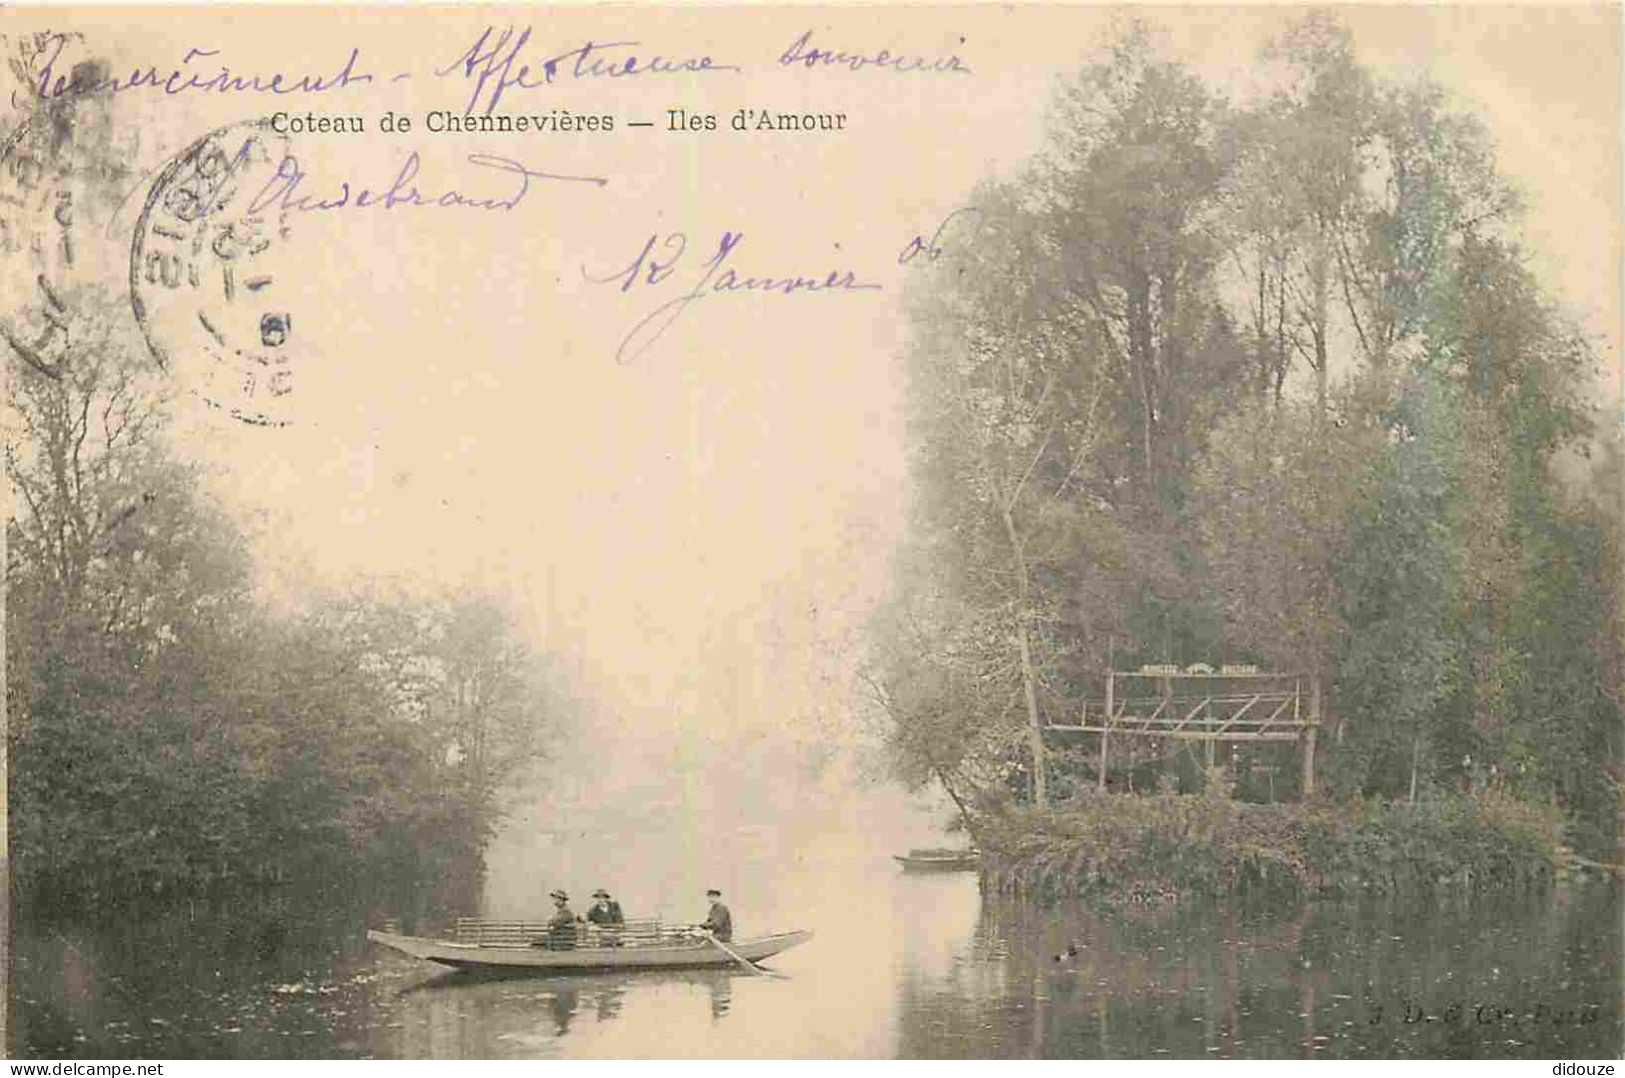 Remerciment - Affectueuse souvenir
Coteau de Chennevières — Iles d'Amour
Audebrand
12 Janvier 06
J. D. & Cie, Paris
didouze